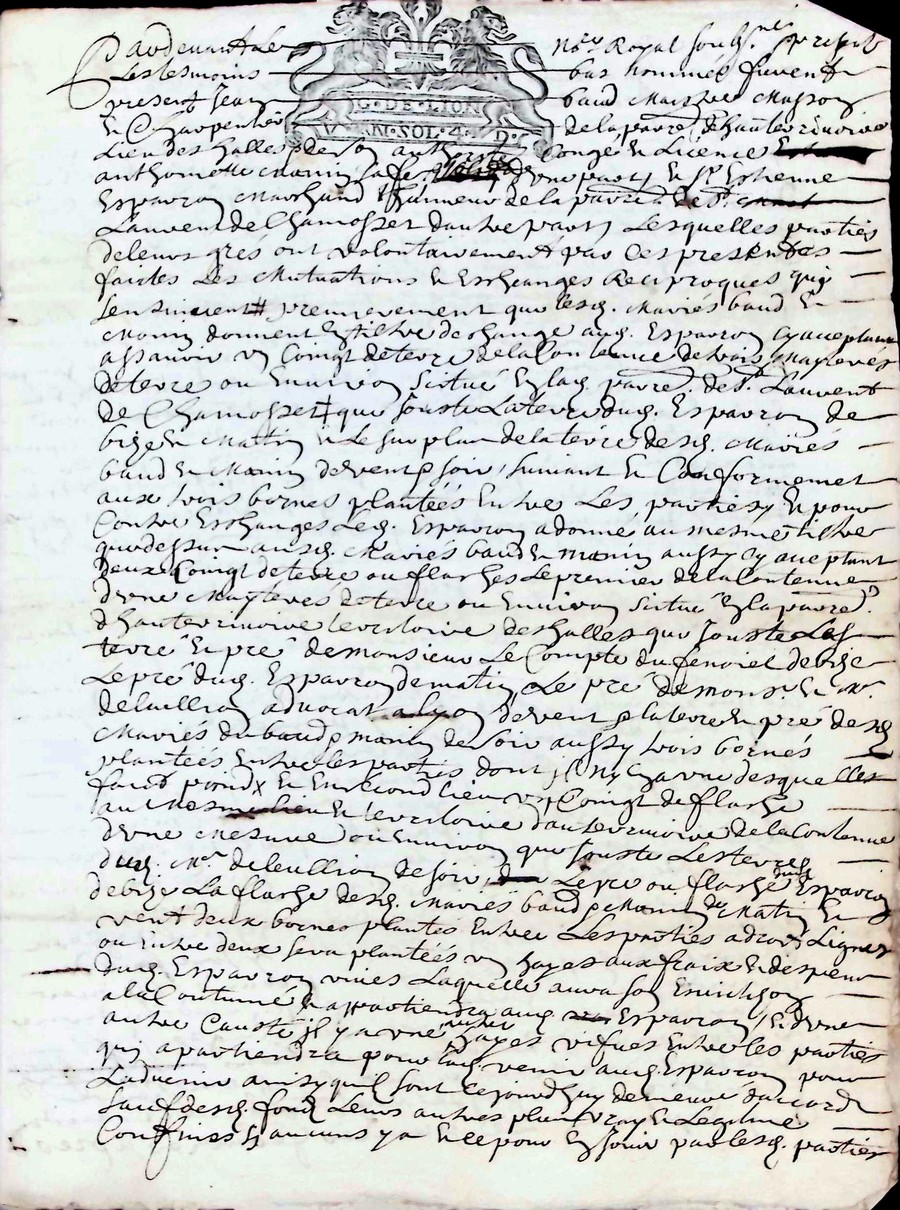 Pardevant Le no.re Royal soubs.né present
Les tesmoins bas nommés furent
present Jean baud Maistre Masson
G. DE LION
& Charpentier de la parre d'hauterivoire
VN SOL. 4. D.
Lieu des halles & de son auth.té Congé & Licence
anthoinette Manin sa fe d'une part & S.r Estienne
Esparron Marchand Chamieur de la parre de S.t
Laurent de Chamosset d'autre part Lesquelles parties
de leurs grés ont volontairement par ces presentes
faictes Les Mutuations & Eschanges Reciproques qui
sensuivent premierement que lesd. Mariés baud &
Manin donnent & tiltre deschange aud. Esparron cy acceptant
assavoir un Coingt de terre de la Contenue de trois Mayteres
de terre ou Environ situé & lad. parre. de S.t Laurent
de Chamosset que Jouste La terre dud. Esparron de
bize & Mattin & Le surplus de la terre desd. Mariés
baud & Manin de vent & soir, suivant & Conformement
aux trois bornes plantées Entre Les partiesy & pour
Contre Eschanges Led. Esparron a donné au mesme tiltre
que dessus ausd. Mariés baud & manin aussy cy acceptant
deux Coingt de terre ou flaches Le premier de la Contenue
d'une Mayteres de terre ou Environ situé & la parre.
d'hauterivoire terrritoire des halles que Jouste Les
terre & pré de monsieur Le Compte du fenoiel de bize
Le pré dud. Esparron de matin Le pré de Mons.r M.r
de leullion advocat a lyon de vent & la terre & pré desd
Mariés du baud & manin de soir aussy trois bornes
plantées Entre les parties dont Il Ny En a une desquelles
& En second lieu un Coingt de flache
au & territoire d'auterivoire de la Contenue
d'une Mesure ou Environ que Jouste Les terres
dud. M.r de leullion de soir, Le pré ou flache dud. Esparron
de bize La flache desd. Mariés baud & Manin de Matin &
vent deux bornes plantés Entre Les parties a droit Lignes
ou Entre deux sera plantées un hayes aux fraix & despens
dud. Esparron vives Laquelle aura son
a la Coutume & appartiendra aud. Esparron, & d'une
autre Causté Il y a une autre hayes vifues Entre les parties
qui apartiendra pour Lad. venir aud. Esparron pour
Ladvenir ainsy quil sont cejourdhuy demeuré daccord
sauf desd. fonds Leurs autres plus vray & Legitime
Confins sy aucuns y a & ce pour En Jouir par lesd. parties